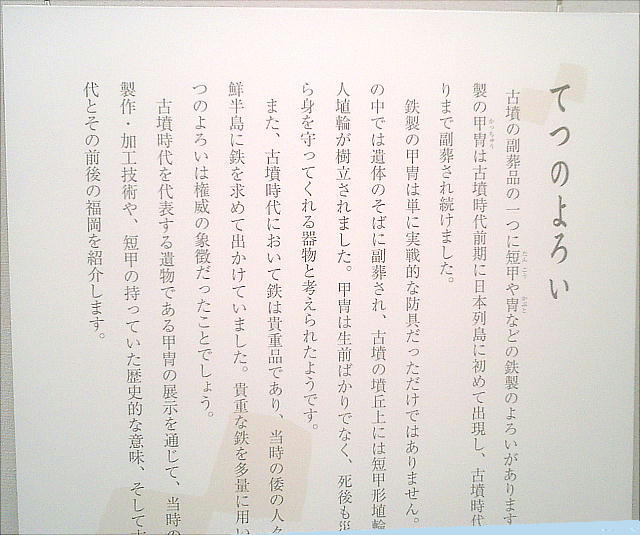 てつのよろい
古墳の副葬品の一つに短甲や冑などの鉄製のよろいがあります
製の甲冑は古墳時代前期に日本列島に初めて出現し、古墳時代
りまで副葬され続けました。
鉄製の甲冑は単に実戦的な防具だっただけではありません。
の中では遺体のそばに副葬され、古墳の墳丘上には短甲形埴輪
人埴輪が樹立されました。甲冑は生前ばかりでなく、死後も災
ら身を守ってくれる器物と考えられたようです。
また、古墳時代において鉄は貴重品であり、当時の倭の人々
鮮半島に鉄を求めて出かけていました。貴重な鉄を多量に用い
つのよろいは権威の象徴だったことでしょう。
古墳時代を代表する遺物である甲冑の展示を通じて、当時の
製作・加工技術や、短甲の持っていた歴史的な意味、そして古
代とその前後の福岡を紹介します。